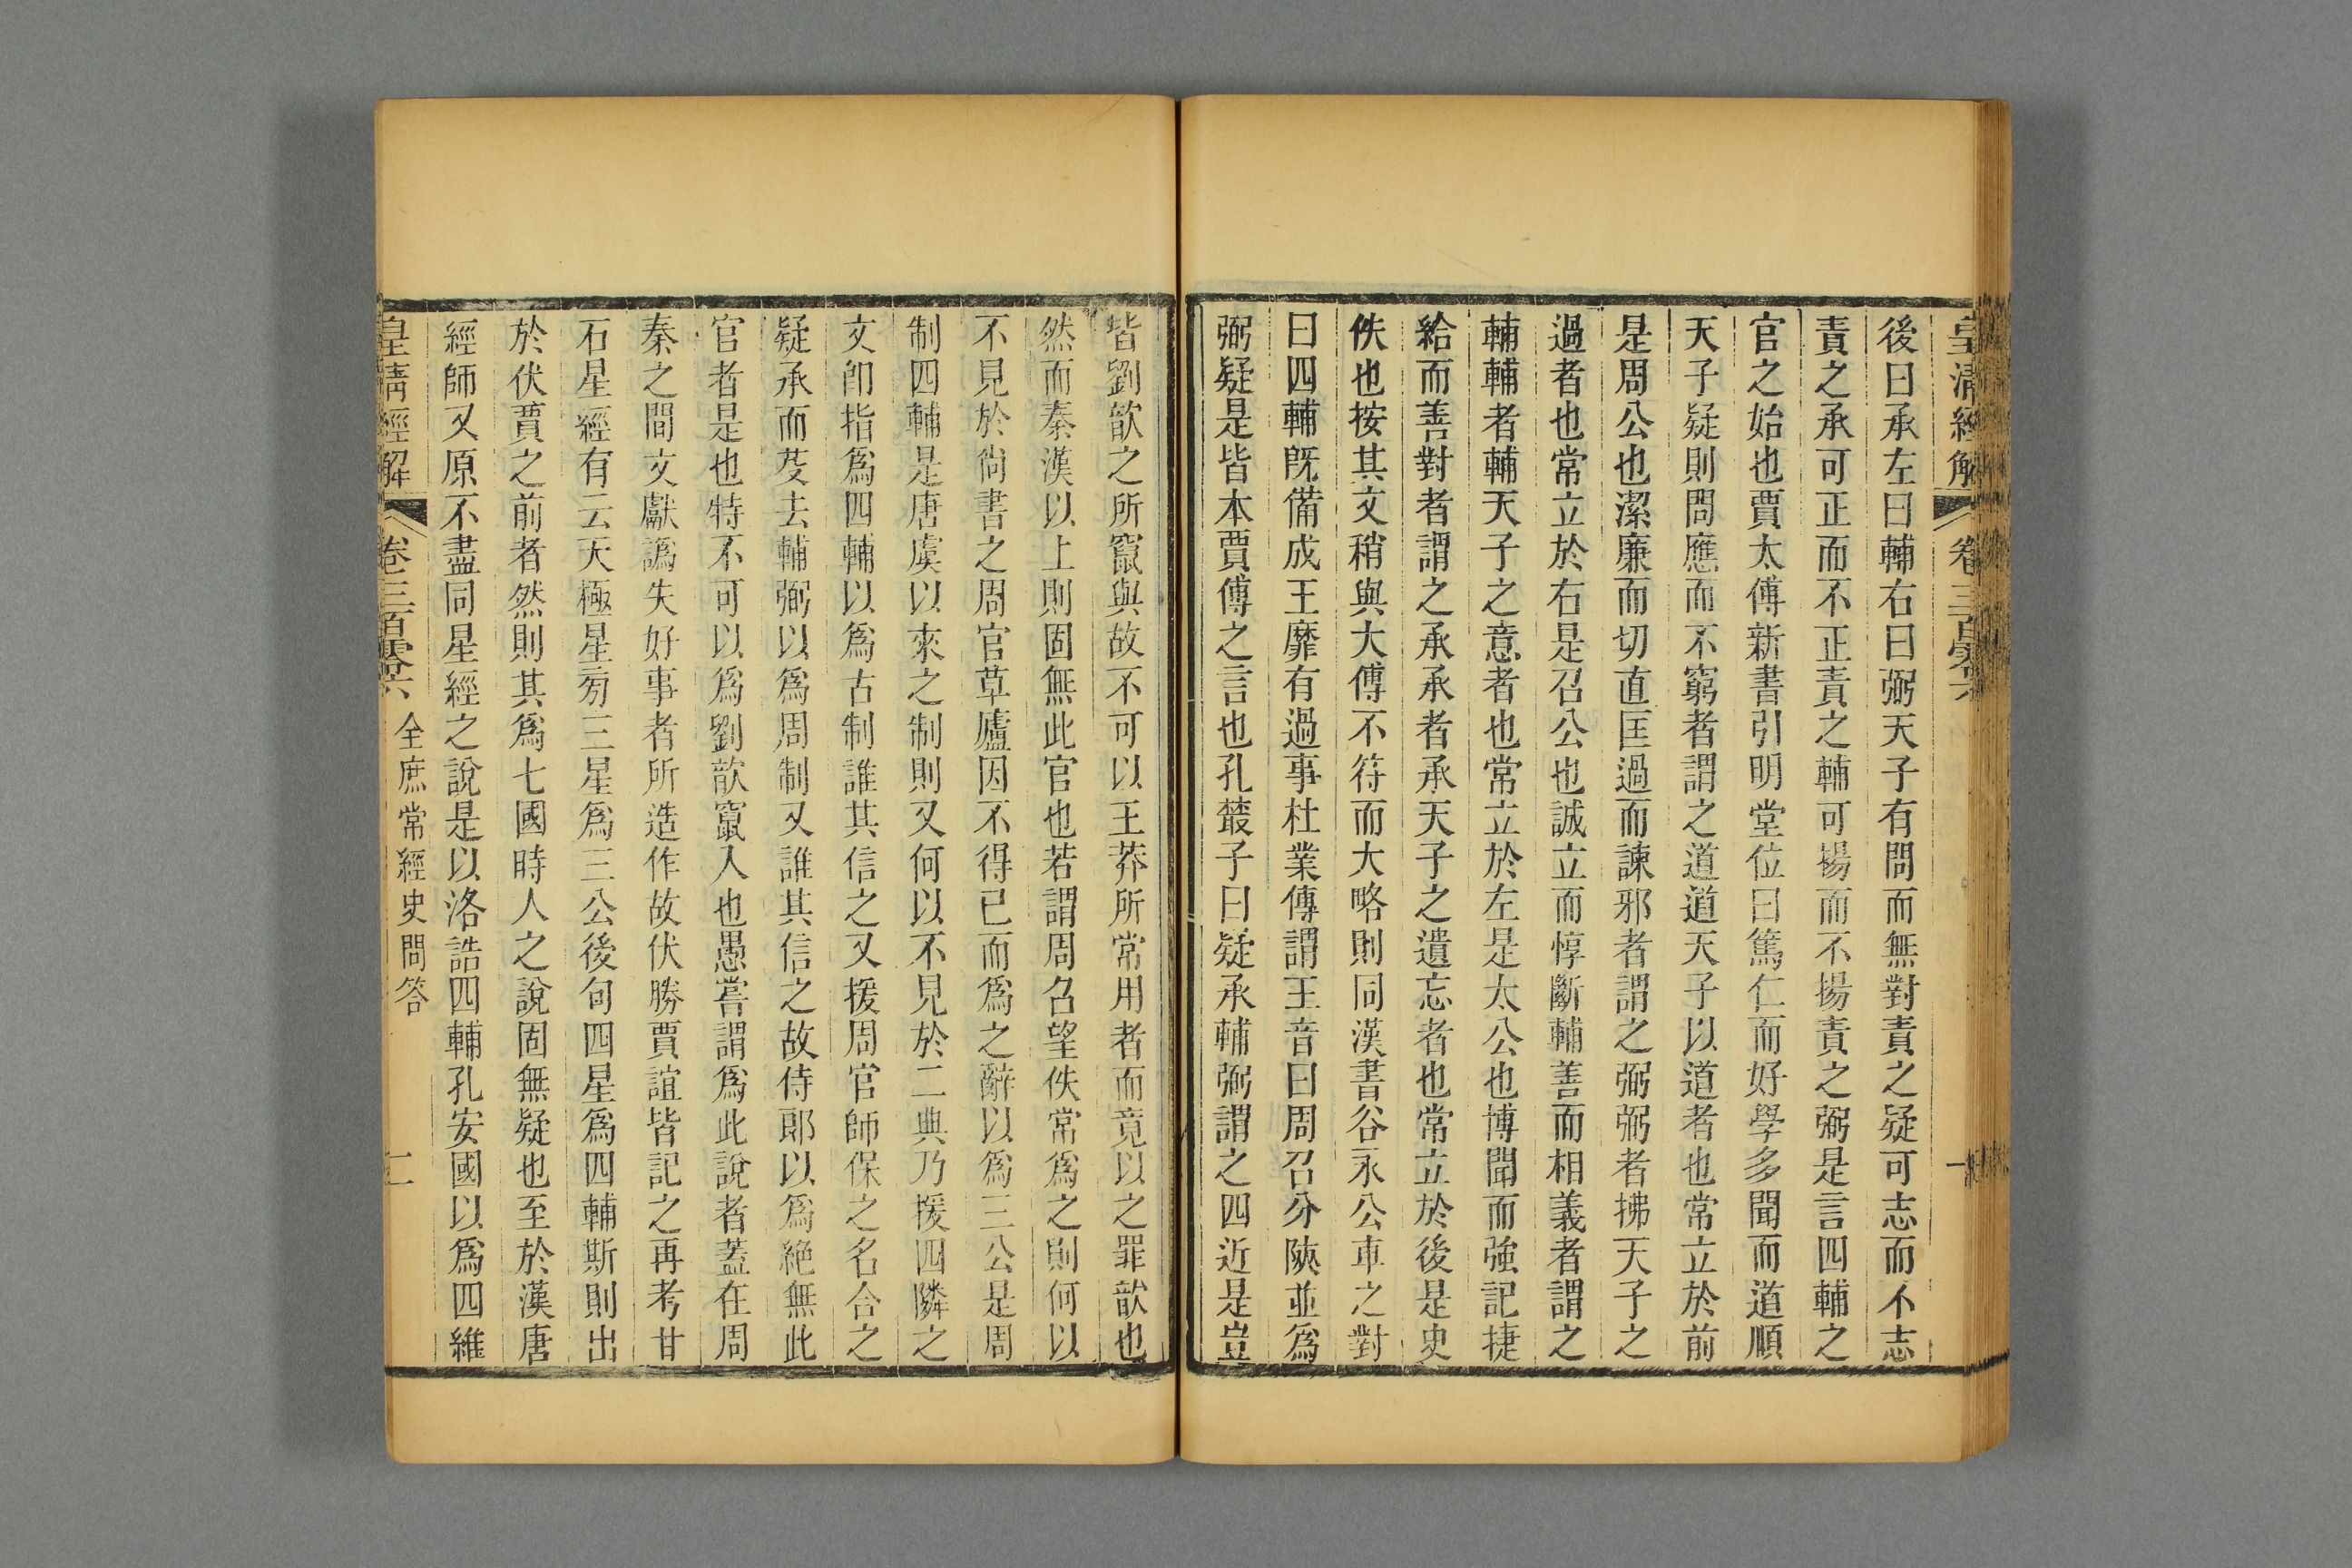 皇清經解
卷三百零六
後曰承左曰輔右曰弼天子有問而無對責之疑可志而不志
責之承可正而不正責之輔可揚而不揚責之弼是言四輔之
官之始也賈太傅新書引明堂位曰篤仁而好學多聞而道順
天子疑則問應而不窮者謂之道道天子以道者也常立於前
是周公也潔廉而切直匡過而諫邪者謂之弼弼者拂天子之
過者也常立於右是召公也誠立而惇斷輔善而相義者謂之
輔輔者輔天子之意者也常立於左是太公也博聞而強記捷
給而善對者謂之承承者承天子之遺忘者也常立於後是史
佚也按其文稍與大傅不符而大略則同漢書谷永公車之對
曰四輔旣備成王靡有過事杜業傳謂王音曰周召分陝並爲
弼疑是皆本賈傅之言也孔叢子曰疑承輔弼謂之四近是豈
皆劉歆之所竄與故不可以王莽所常用者而竟以之罪歆也
然而秦漢以上則固無此官也若謂周召望佚常爲之則何以
不見於尙書之周官草廬因不得已而爲之辭以爲三公是周
制四輔是唐虞以來之制則又何以不見於二典乃援四隣之
文卽指爲四輔以爲古制誰其信之又援周官師保之名合之
疑承而芟去輔弼以爲周制又誰其信之故侍郞以爲絕無此
官者是也特不可以爲劉歆竄入也愚嘗謂爲此說者蓋在周
秦之間文獻譌失好事者所造作故伏勝賈誼皆記之再考甘
石星經有云天極星旁三星爲三公後句四星爲四輔斯則出
於伏賈之前者然則其爲七國時人之說固無疑也至於漢唐
經師又原不盡同星經之說是以洛誥四輔孔安國以爲四維
皇清經解
卷三百零六
全庶常經史問答
二